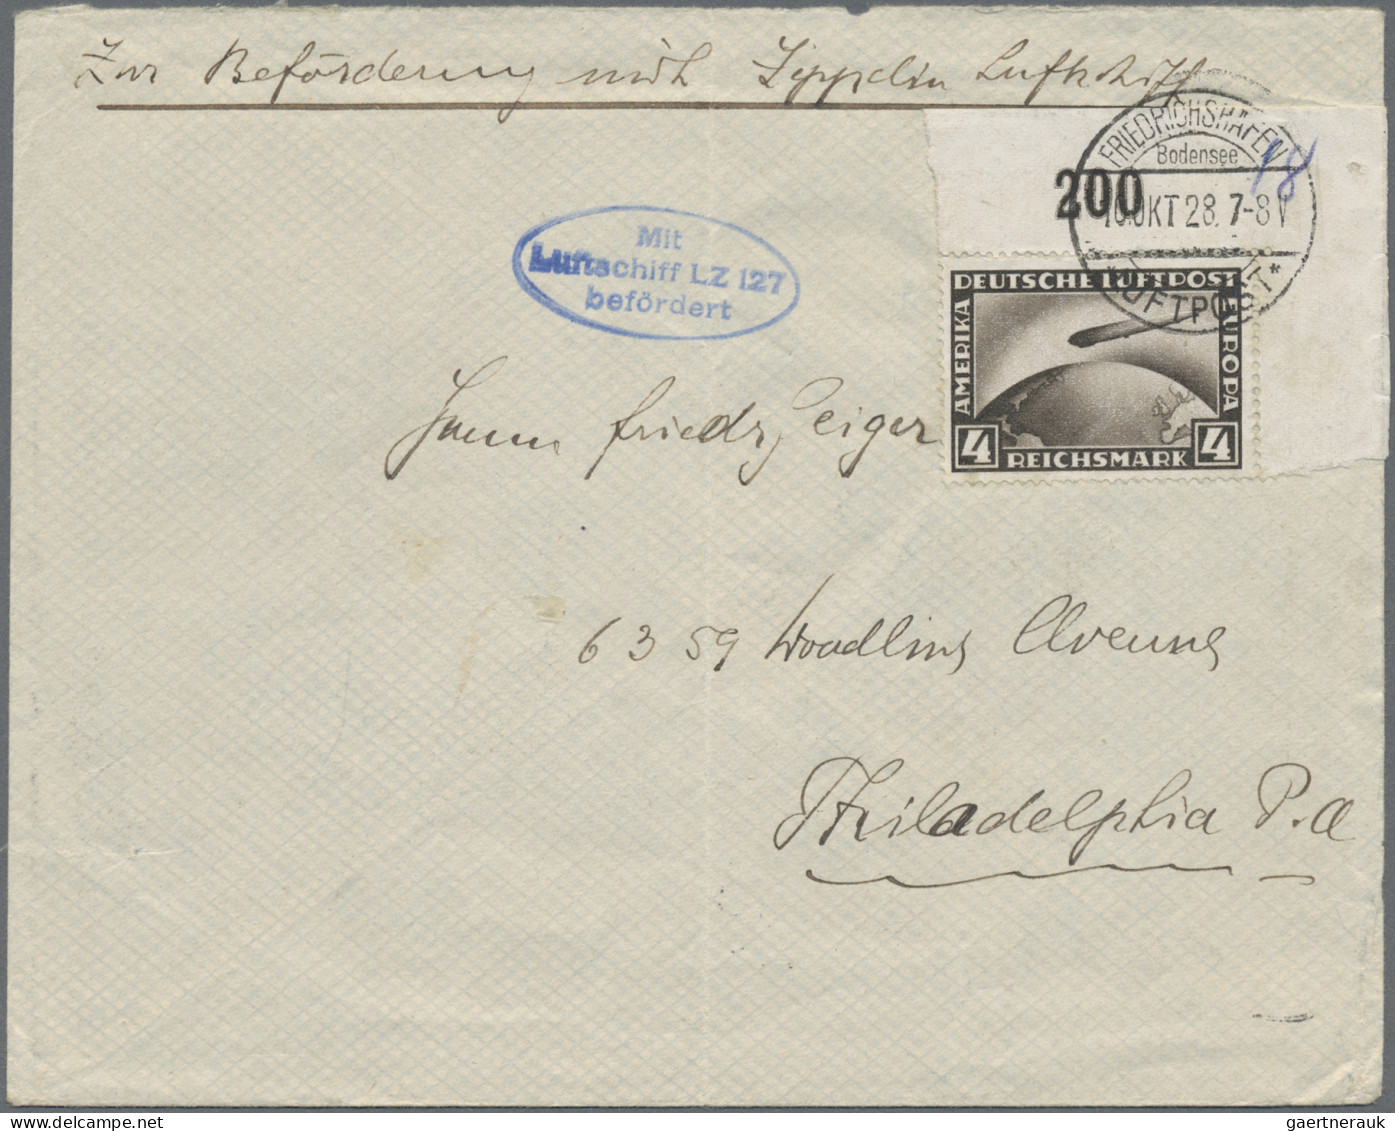 Zur Beförderung mit Zeppelin Luftschiff
FRIEDRICHSHAFEN
Bodensee
18
200
10.OKT 28. 7-8 V
* LUFTPOST *
Mit
Luftschiff LZ 127
befördert
DEUTSCHE LUFTPOST
AMERIKA
EUROPA
4 REICHSMARK 4
Herrn Friedr. Geiger
6359 Woodlins Avenue
Philadelphia P.a
gaertnerauk
www.delcampe.net